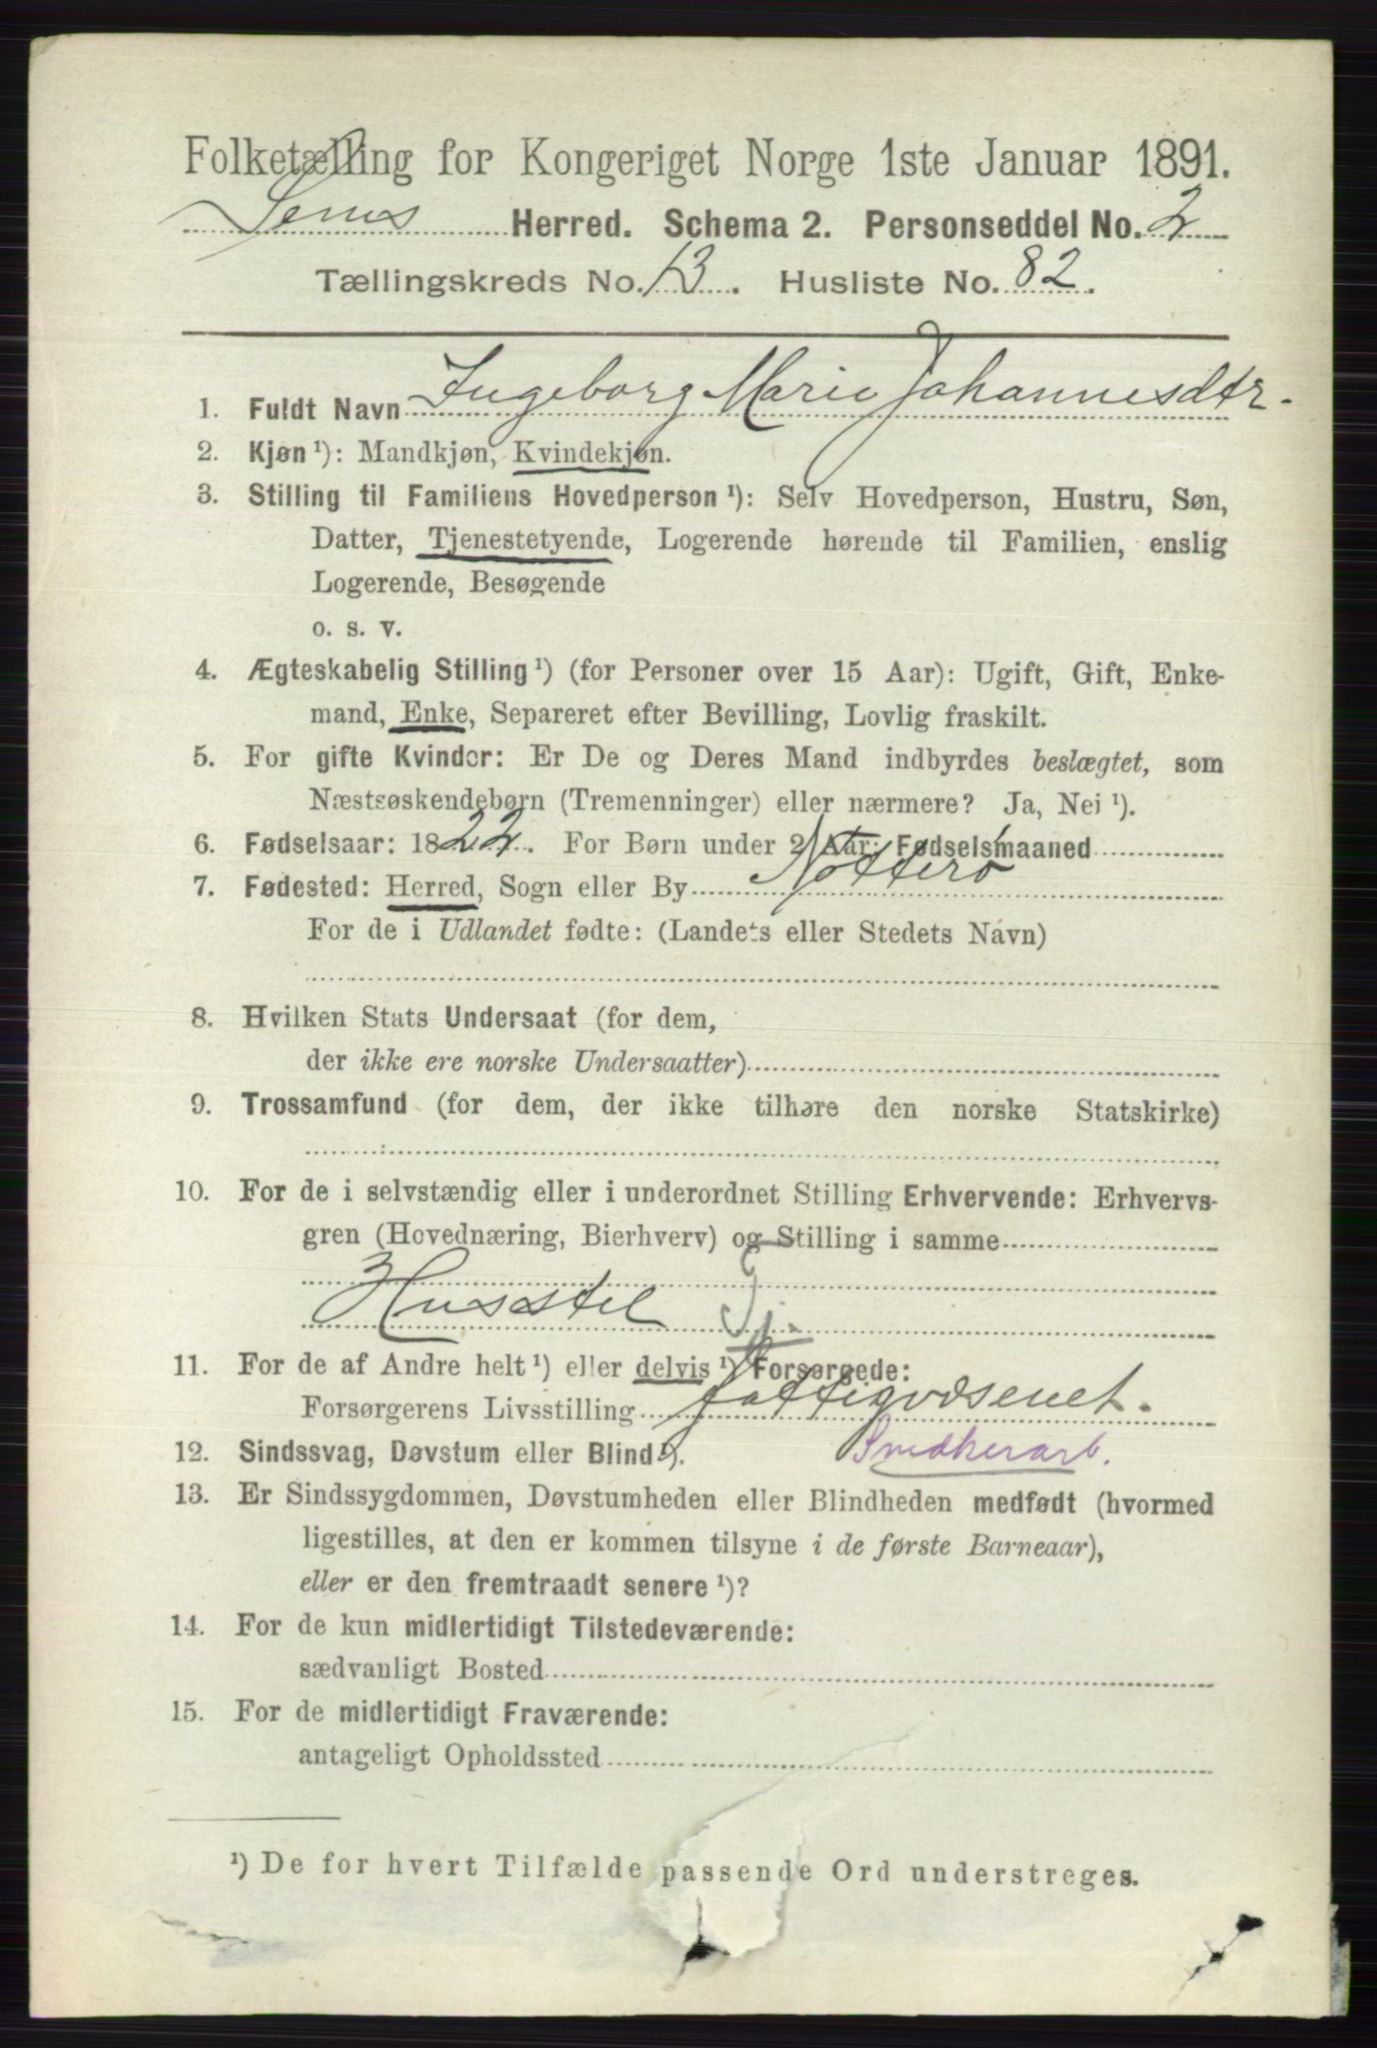 Folketælling for Kongeriget Norge 1ste Januar 1891.
Sems Herred. Schema 2. Personseddel No. 2
Tællingskreds No. 13. Husliste No. 82.
1. Fuldt Navn Ingeborg Marie Johannesdtr.
2. Kjøn ¹): Mandkjøn, Kvindekjøn.
3. Stilling til Familiens Hovedperson ¹): Selv Hovedperson, Hustru, Søn,
Datter, Tjenestetyende, Logerende hørende til Familien, enslig
Logerende, Besøgende
o. s. v.
4. Ægteskabelig Stilling ¹) (for Personer over 15 Aar): Ugift, Gift, Enke-
mand, Enke, Separeret efter Bevilling, Lovlig fraskilt.
5. For gifte Kvinder: Er De og Deres Mand indbyrdes beslægtet, som
Næstsøskendebørn (Tremenninger) eller nærmere? Ja, Nei ¹).
6. Fødselsaar: 1822. For Børn under 2 Aar: Fødselsmaaned
7. Fødested: Herred, Sogn eller By Nøtterø
For de i Udlandet fødte: (Landets eller Stedets Navn)
8. Hvilken Stats Undersaat (for dem,
der ikke ere norske Undersaatter)
9. Trossamfund (for dem, der ikke tilhøre den norske Statskirke)
10. For de i selvstændig eller i underordnet Stilling Erhvervende: Erhvervs-
gren (Hovednæring, Bierhverv) og Stilling i samme
Husstel Tj.
11. For de af Andre helt ¹) eller delvis ¹) Forsørgede:
Forsørgerens Livsstilling fattigvæsenet.
12. Sindssvag, Døvstum eller Blind ¹). Snedkerarb.
13. Er Sindssygdommen, Døvstumheden eller Blindheden medfødt (hvormed
ligestilles, at den er kommen tilsyne i de første Barneaar),
eller er den fremtraadt senere ¹)?
14. For de kun midlertidigt Tilstedeværende:
sædvanligt Bosted
15. For de midlertidigt Fraværende:
antageligt Opholdssted
¹) De for hvert Tilfælde passende Ord understreges.